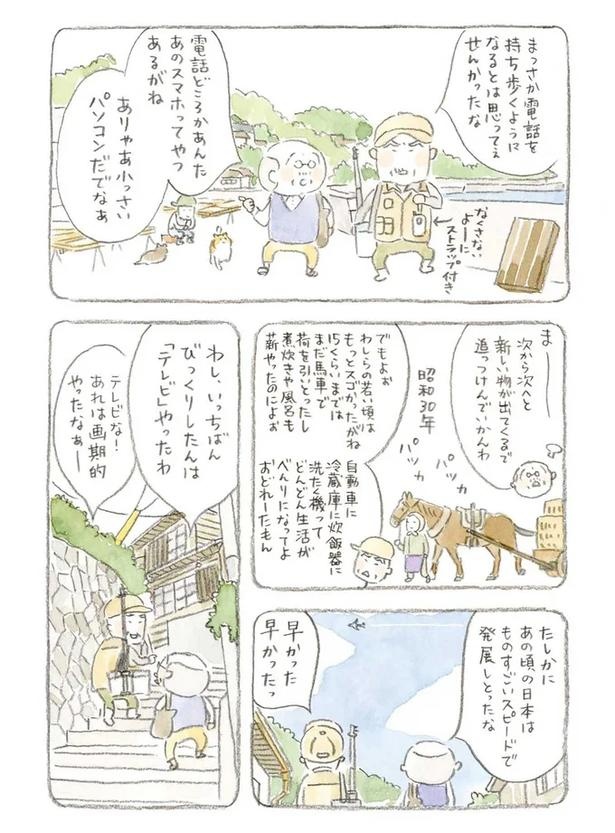 まっさか電話を
持ち歩くように
なるとは思ってえ
せんかったな
なくさない
よーに
ストラップ付き
電話どころかあんた
あのスマホってやつ
あるがね
ありゃあ小っさい
パソコンだでなぁ
まー
次から次へと
新しい物が出てくるで
追っつけんでいかんわ
昭和30年
パッカ
パッカ
でもよぉ
わしらの若い頃は
もっとスゴかったがね
15くらいまでは
まだ馬車で
荷を引いとったし
煮炊きや風呂も
薪やったのによぉ
自動車に
冷蔵庫に炊飯器に
洗たく機って
どんどん生活が
べんりになってよ
おどれーたもん
たしかに
あの頃の日本は
ものすごいスピードで
発展しとったな
早かった
早かったっ
わし、いっちばん
びっくりしたんは
「テレビ」やったわ
テレビな!
あれは画期的
やったなぁー